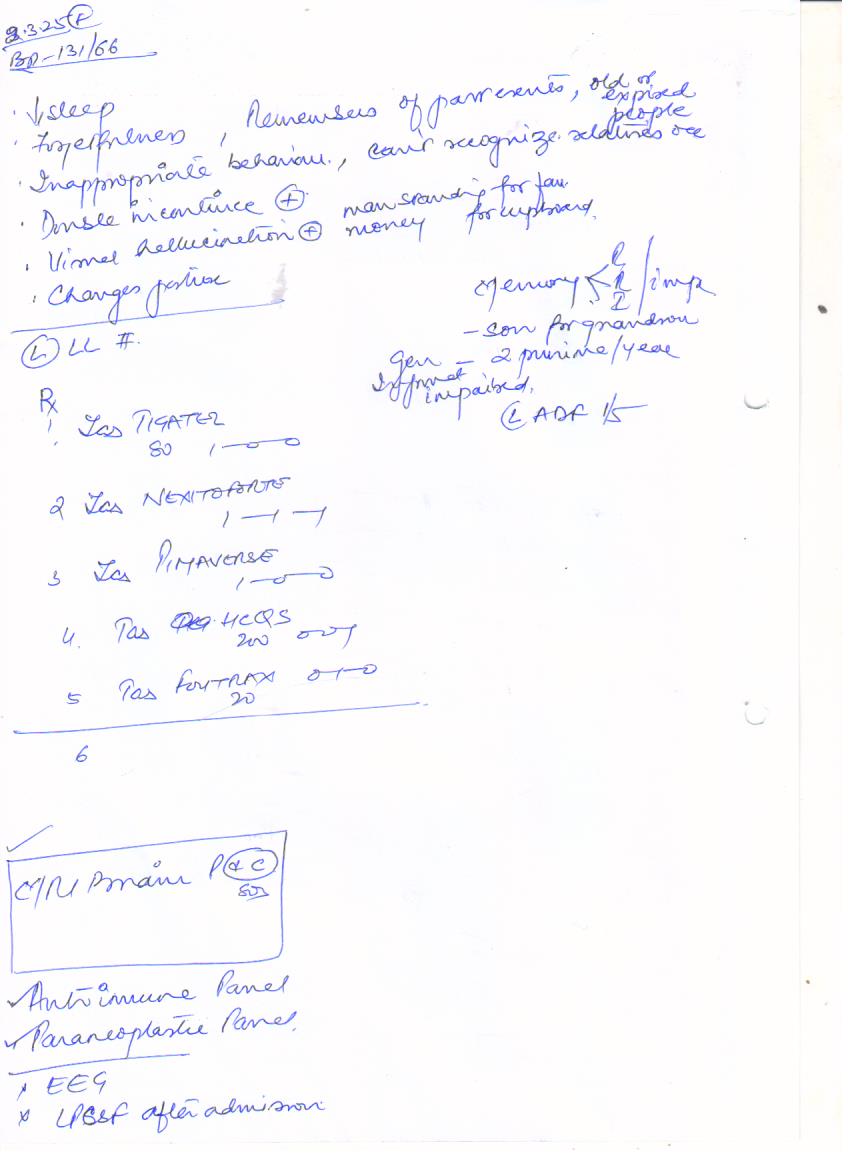 3.25 F
BP - 131/66
· ↓ sleep
· Forgetfulness, Remembers of past events, old or expired people
· Inappropriate behaviour, can't recognize relatives
· Double incontince +
· Visual hallucination + man standing for fan
money for cupboard.
· Changes
Memory < R R I / imp
- son for grandson
Gen - 2 /year
impaired.
L LL #.
L ADF 1/5
Rx
1 Tab TIGATEL
80 1-0-0
2 Tab NEXITOFORTE
1-1-1
3 Tab PIMAVERSE
1-0-0
4. Tab HCQS
200 0-0-1
5 Tab
20 0-1-0
6
MRI Brain P & C
SOS
Autoimmune Panel
Paraneoplastic Panel.
EEG
after admission